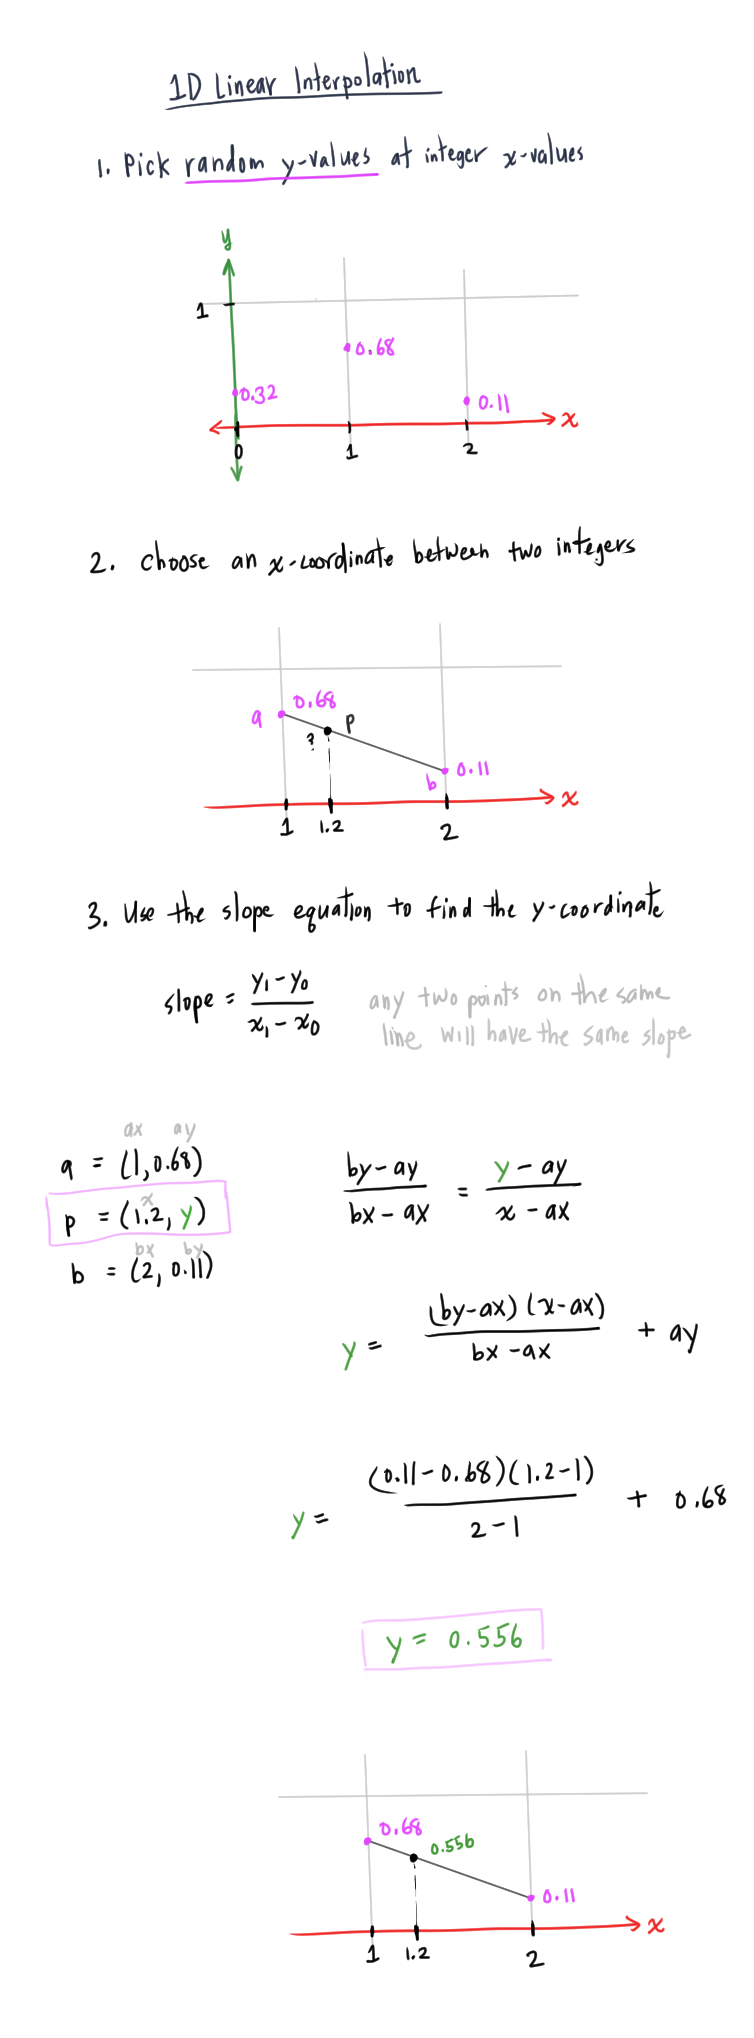 1D Linear Interpolation
1. Pick random y-values at integer x-values
y
1
0.68
0.32
0.11
x
0
1
2
2. choose an x-coordinate between two integers
0.68
a
p
?
0.11
b
x
1
1.2
2
3. Use the slope equation to find the y-coordinate
slope = y₁ - y₀ / x₁ - x₀
any two points on the same
line will have the same slope
ax ay
a = (1, 0.68)
x
p = (1.2, y)
bx by
b = (2, 0.11)
by - ay / bx - ax = y - ay / x - ax
y = (by-ax)(x-ax) / bx - ax + ay
y = (0.11 - 0.68)(1.2 - 1) / 2 - 1 + 0.68
y = 0.556
0.68
0.556
0.11
x
1
1.2
2